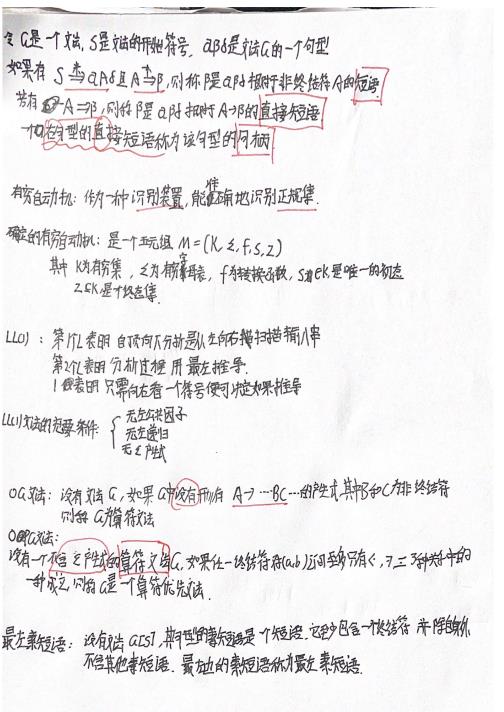 令 G是一个文法, S是文法的开始符号, αβδ是文法G的一个句型
如果有 S ⇒* αAδ且 A ⇒+ β, 则称 β是αβδ相对于非终结符A的短语
若有 A ⇒ β, 则称 β是αβδ相对于 A→β的直接短语
一个句型的直接短语称为该句型的句柄
有穷自动机: 作为一种识别装置, 能准确地识别正规集.
确定的有穷自动机: 是一个五元组 M = (K, Σ, f, S, Z)
其中 K为有穷集, Σ为有穷字母表, f为转换函数, S∈K是唯一的初态
Z⊆K是终态集.
LL(1) : 第1个L表明 自顶向下分析是从左向右扫描输入串
第2个L表明 分析过程 用 最左推导.
1 表明 只需向右看一个符号便可决定如果推导
LL(1)文法的充要条件: { 无左公共因子
无左递归
无ε产生式
OG文法: 设有文法 G, 如果 G中没有形如 A → …BC…的产生式, 其中B和C为非终结符
则称 G为算符文法
OPG文法:
设有一个不含ε产生式的算符文法G, 如果任一终结符对(a,b)之间至多只有<, >, = 3种关系中的
一种成立, 则称 G是一个算符优先文法.
最左素短语: 设有文法 G[S], 其句型的素短语是一个短语. 它至少包含一个终结符 并 除自身外
不含其他素短语. 最左边的素短语称为最左素短语.